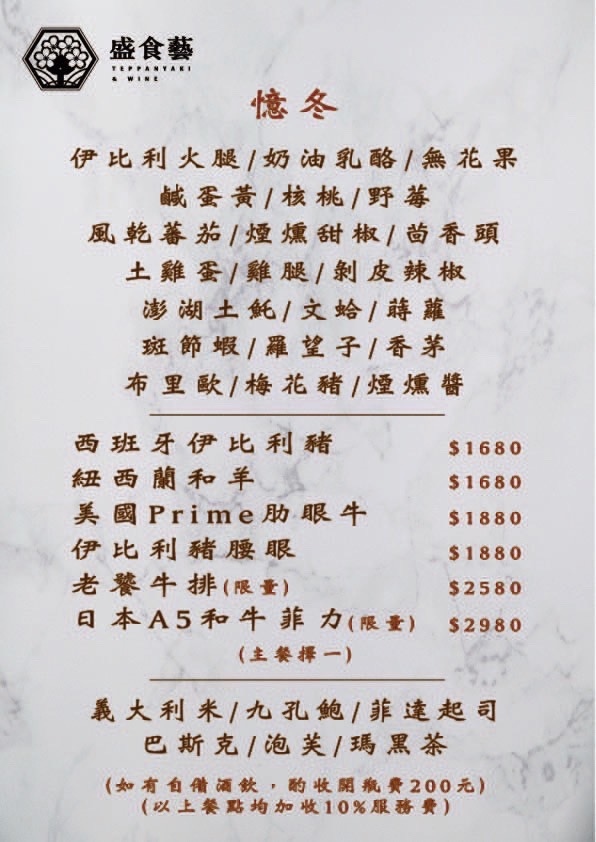 盛食藝
TEPPANYAKI
& WINE
憶冬
伊比利火腿/奶油乳酪/無花果
鹹蛋黃/核桃/野莓
風乾蕃茄/煙燻甜椒/茴香頭
土雞蛋/雞腿/剝皮辣椒
澎湖土魠/文蛤/蒔蘿
斑節蝦/羅望子/香茅
布里歐/梅花豬/煙燻醬
西班牙伊比利豬 $1680
紐西蘭和羊 $1680
美國Prime肋眼牛 $1880
伊比利豬腰眼 $1880
老饕牛排(限量) $2580
日本A5和牛菲力(限量) $2980
(主餐擇一)
義大利米/九孔鮑/菲達起司
巴斯克/泡芙/瑪黑茶
(如有自備酒飲，酌收開瓶費200元)
(以上餐點均加收10%服務費)